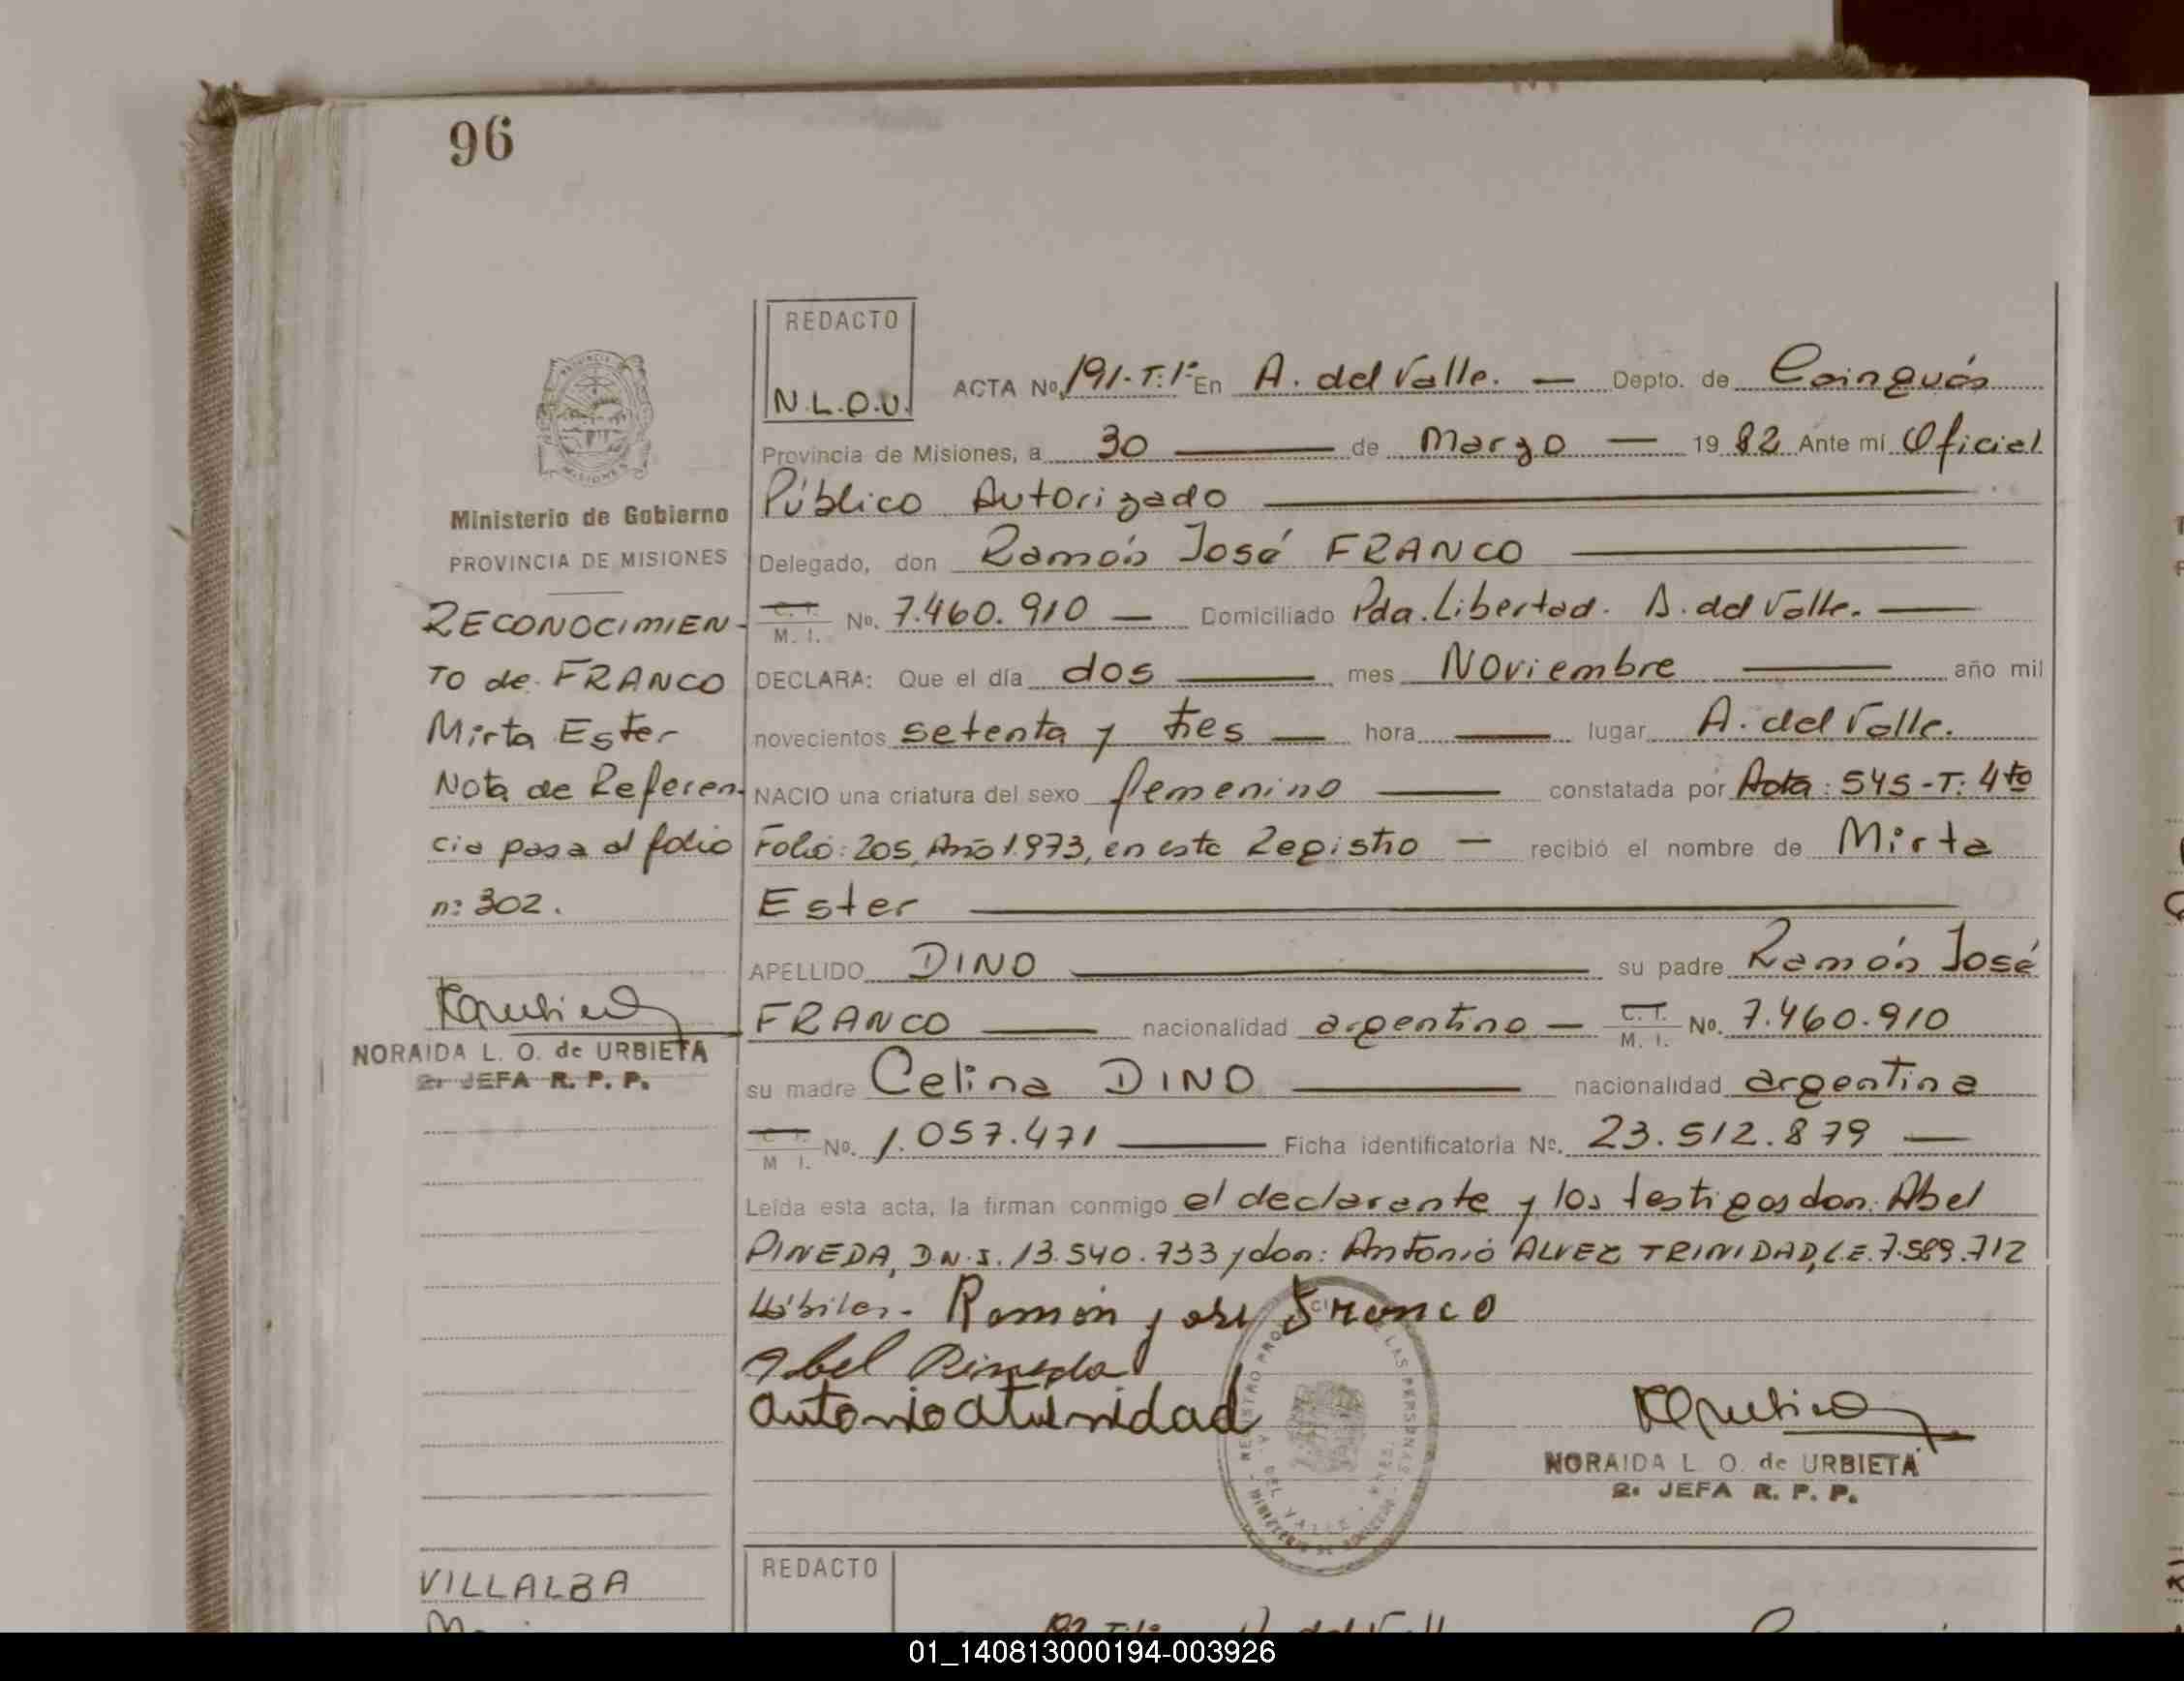 96
REDACTO
N.L.O.U.
ACTA No. 191-T:1º En A. del Valle. — Depto. de Cainguás
Provincia de Misiones, a 30 — de Marzo — 1982 Ante mí Oficial
Público Autorizado
Delegado, don Ramón José FRANCO
C. I. M. I. No. 7.460.910 — Domiciliado Pda. Libertad. A. del Valle. —
DECLARA: Que el día dos — mes Noviembre — año mil
novecientos setenta y tres — hora — lugar A. del Valle.
NACIO una criatura del sexo femenino — constatada por Acta: 545-T: 4to
Folio: 205, Año 1.973, en este Registro — recibió el nombre de Mirta
Ester
APELLIDO DINO — su padre Ramón José
FRANCO — nacionalidad argentino — C. I. M. I. No. 7.460.910
su madre Celina DINO — nacionalidad argentina
C. I. M. I. No. 1.057.471 — Ficha identificatoria No. 23.512.879 —
Leída esta acta, la firman conmigo el declarante y los testigos don: Abel
PINEDA, D.N.I. 13.540.733 y don: Antonio ALVEZ TRINIDAD, L.E. 7.589.712
Hábiles.- Ramón José Franco
Abel Pineda
Antonio a trinidad
NORAIDA L. O. de URBIETA
2ª JEFA R. P. P.
Ministerio de Gobierno
PROVINCIA DE MISIONES
RECONOCIMIEN-
TO de FRANCO
Mirta Ester
Nota de Referen-
cia pasa al folio
nº 302.
NORAIDA L. O. de URBIETA
2ª JEFA R. P. P.
VILLALBA
REDACTO
01_140813000194-003926